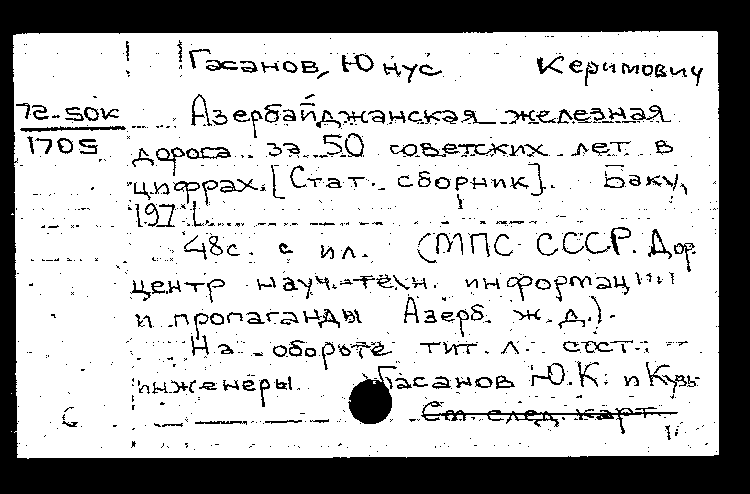 Гасанов, Юнус Керимович
72-50к
1705
Азербайджанская железная
дорога за 50 советских лет в
цифрах. [Стат. сборник]. Баку,
1971.
48с. с ил. (МПС СССР. Дор.
центр науч.-техн. информации
и пропаганды Азерб. ж.д.).
На обороте тит. л. сост.:
инженеры Гасанов Ю.К. и Кузь-
См. след. карт.